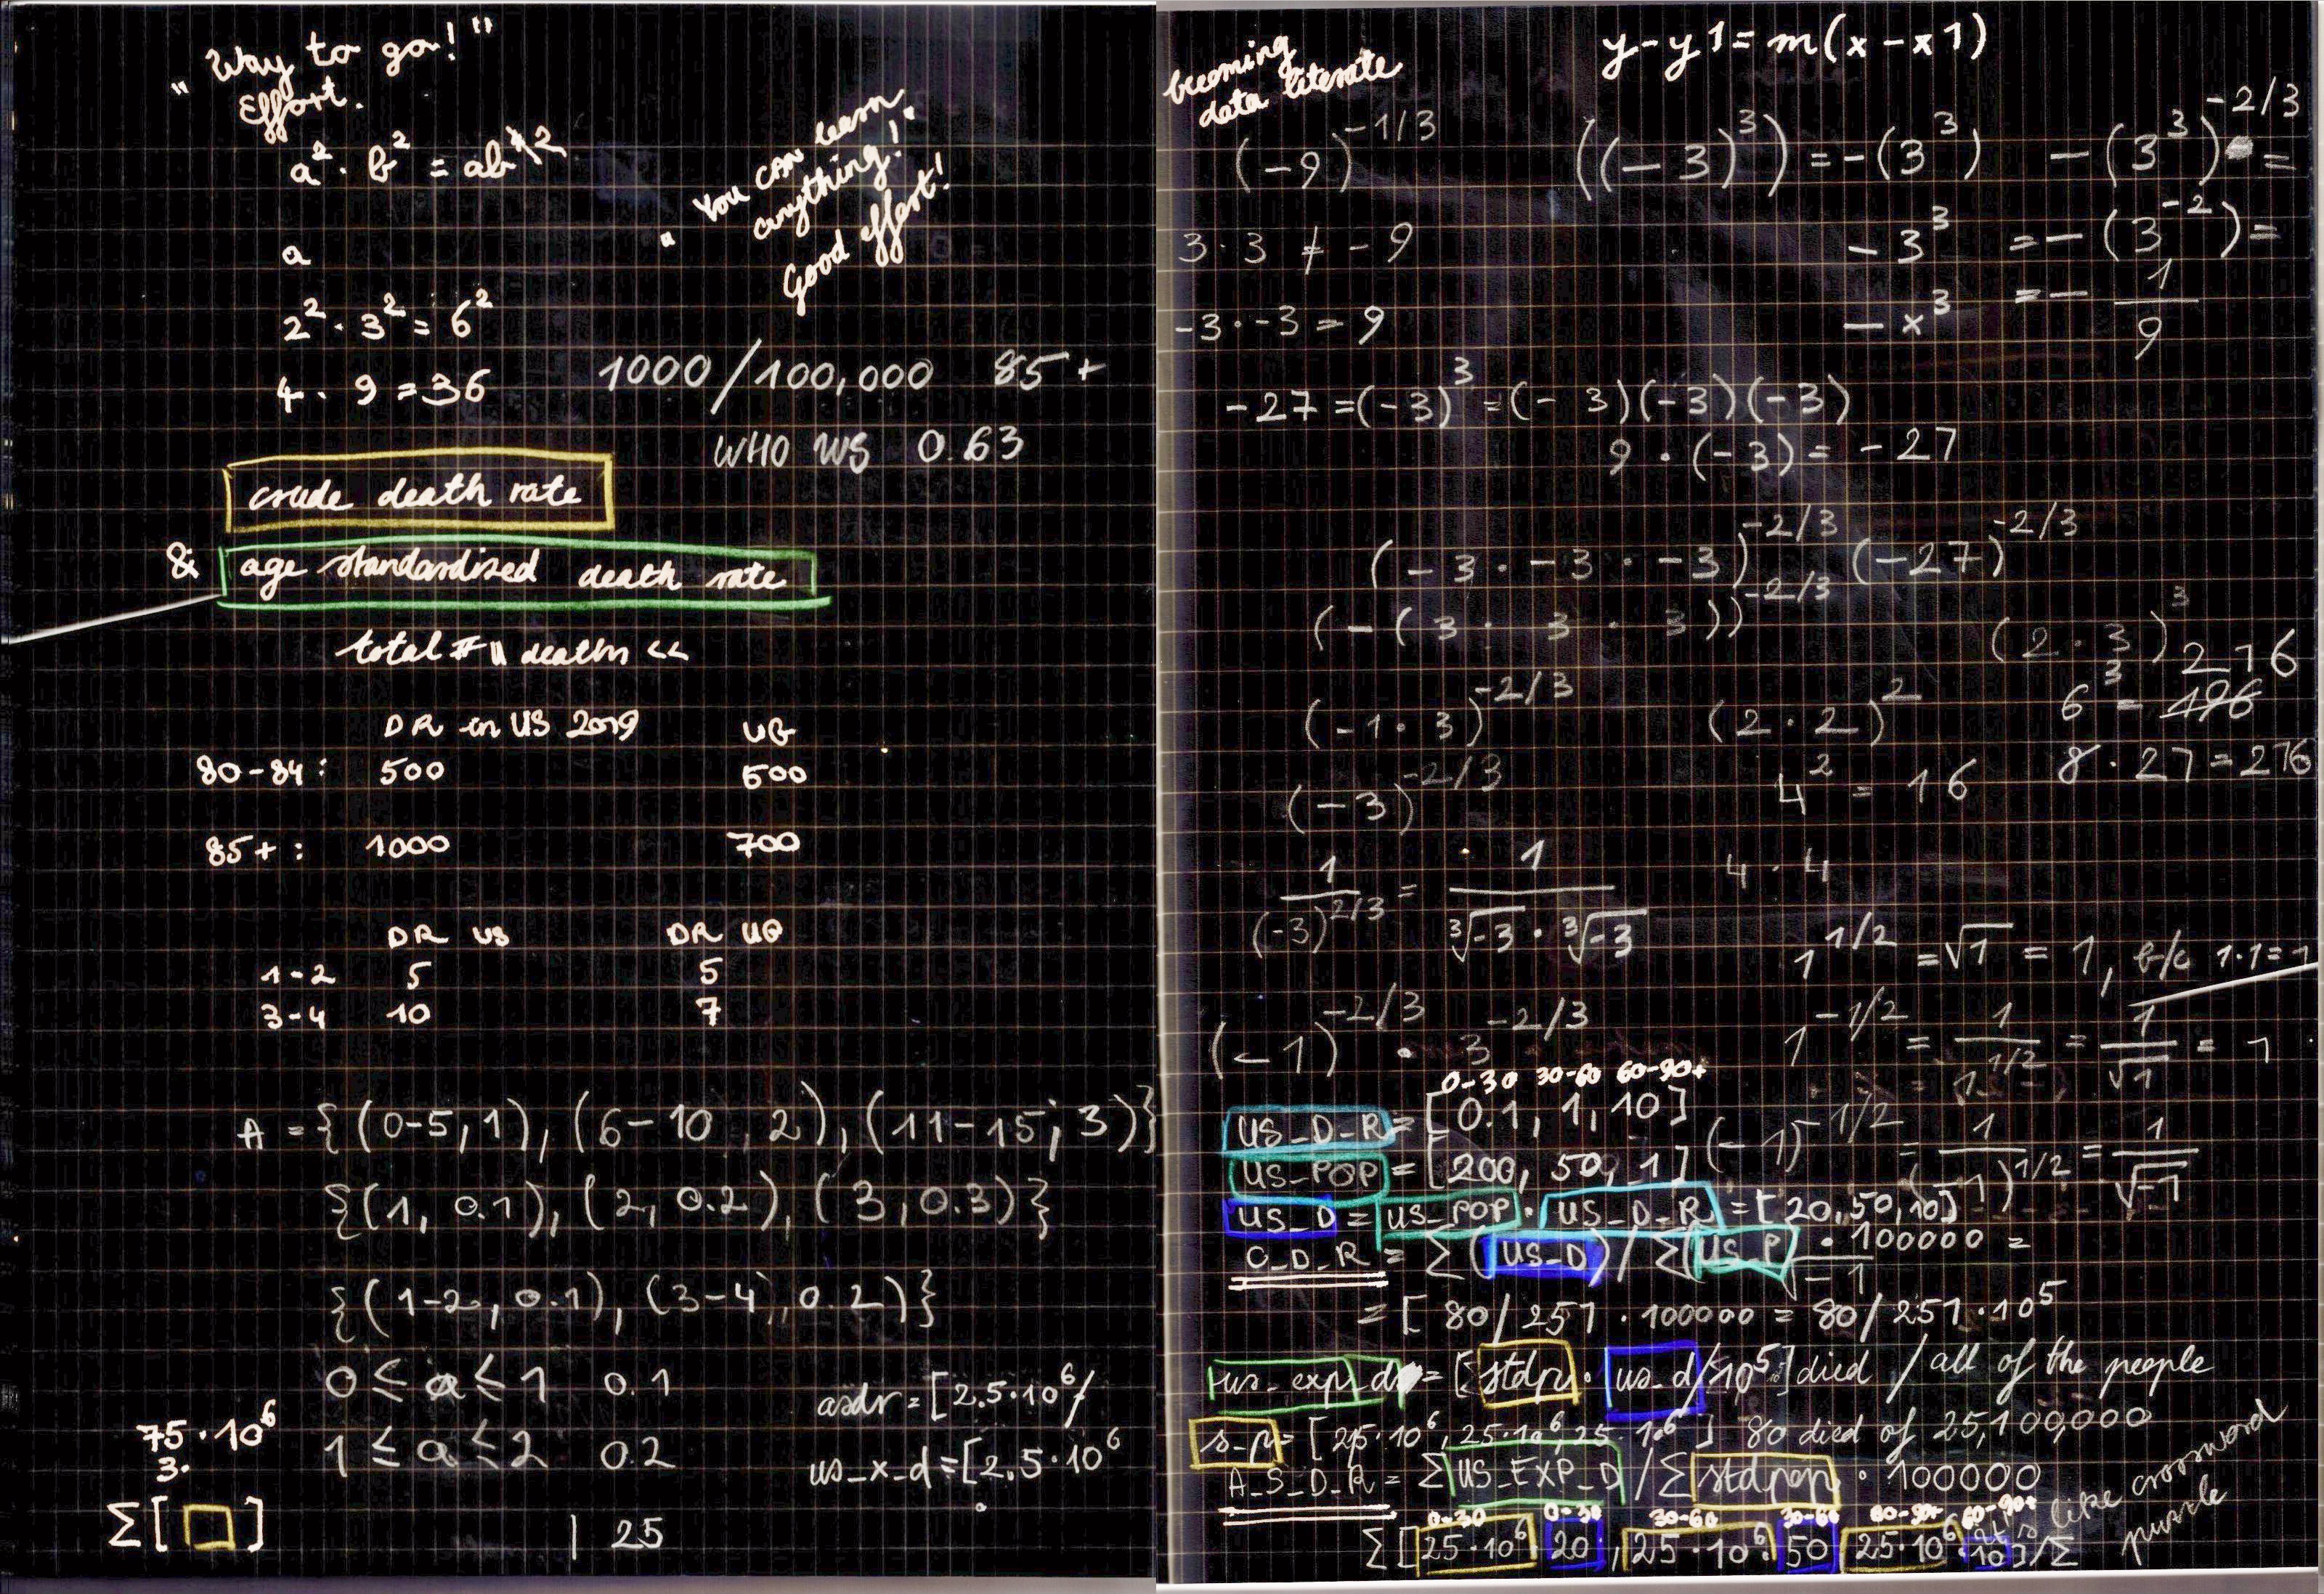 "Way to go!"
Effort.
a² · b² = ab^2
"You CAN learn
anything!"
Good effort!
a
2² · 3² = 6²
4 · 9 = 36
1000/100,000 85+
WHO WS 0.63
crude death rate
& age standardized death rate
total # deaths <<
DR in US 2019 UG
80-84: 500 500
85+: 1000 700
DR US DR UG
1-2 5 5
3-4 10 7
A = {(0-5, 1), (6-10, 2), (11-15, 3)}
{(1, 0.1), (2, 0.2), (3, 0.3)}
{(1-2, 0.1), (3-4, 0.2)}
0 ≤ a ≤ 1 0.1
1 ≤ a ≤ 2 0.2
asdr = [2.5·10⁶/
us_x_d = [2.5·10⁶
75·10⁶
3·
Σ[ ]
| 25
becoming
data literate
y-y1 = m(x-x1)
(-9)^-1/3
((-3)³) = -(3³)
-(3³)^-2/3 =
3·3 ≠ -9
-3³
= -(3^-2) =
-3·-3 = 9
-x³
= - 1/9
-27 = (-3)³ = (-3)(-3)(-3)
9 · (-3) = -27
(-3 · -3 · -3)^-2/3 (-27)^-2/3
(-(3 · 3 · 3))^-2/3
(2·3)³ 216
(-1·3)^-2/3
(2·2)²
6³ =
(-3)^-2/3
4² = 16
8·27 = 216
1/(-3)^2/3 = 1/(³√-3 · ³√-3)
4·4
1^1/2 = √1 = 1, b/c 1·1=1
(-1)^-2/3 · 3^-2/3
1^-1/2 = 1/1^1/2 = 1/√1 = 1
0-30 30-60 60-90+
US_D_R = [0.1, 1, 10]
(-1)^-1/2 = 1/(-1)^1/2 = 1/√-1
US_POP = [200, 50, 1]
US_D = US_POP · US_D_R = [20, 50, 10]
C_D_R = Σ(US_D) / Σ(US_P) · 100000 =
√-1
= [80/251 · 100000 = 80/251 · 10⁵
us_exp_d = [stdp · us_d/10⁵] died / all of the people
s_p = [25·10⁶, 25·10⁶, 25·10⁶] 80 died of 25,100,000
A_S_D_R = Σ US_EXP_D / Σ stdpop · 100000
0-30 0-30 30-60 30-60 60-90+ 60-90+
Σ[25·10⁶ · 20, 25·10⁶ · 50 25·10⁶ · 10]/Σ
like crossword
puzzle